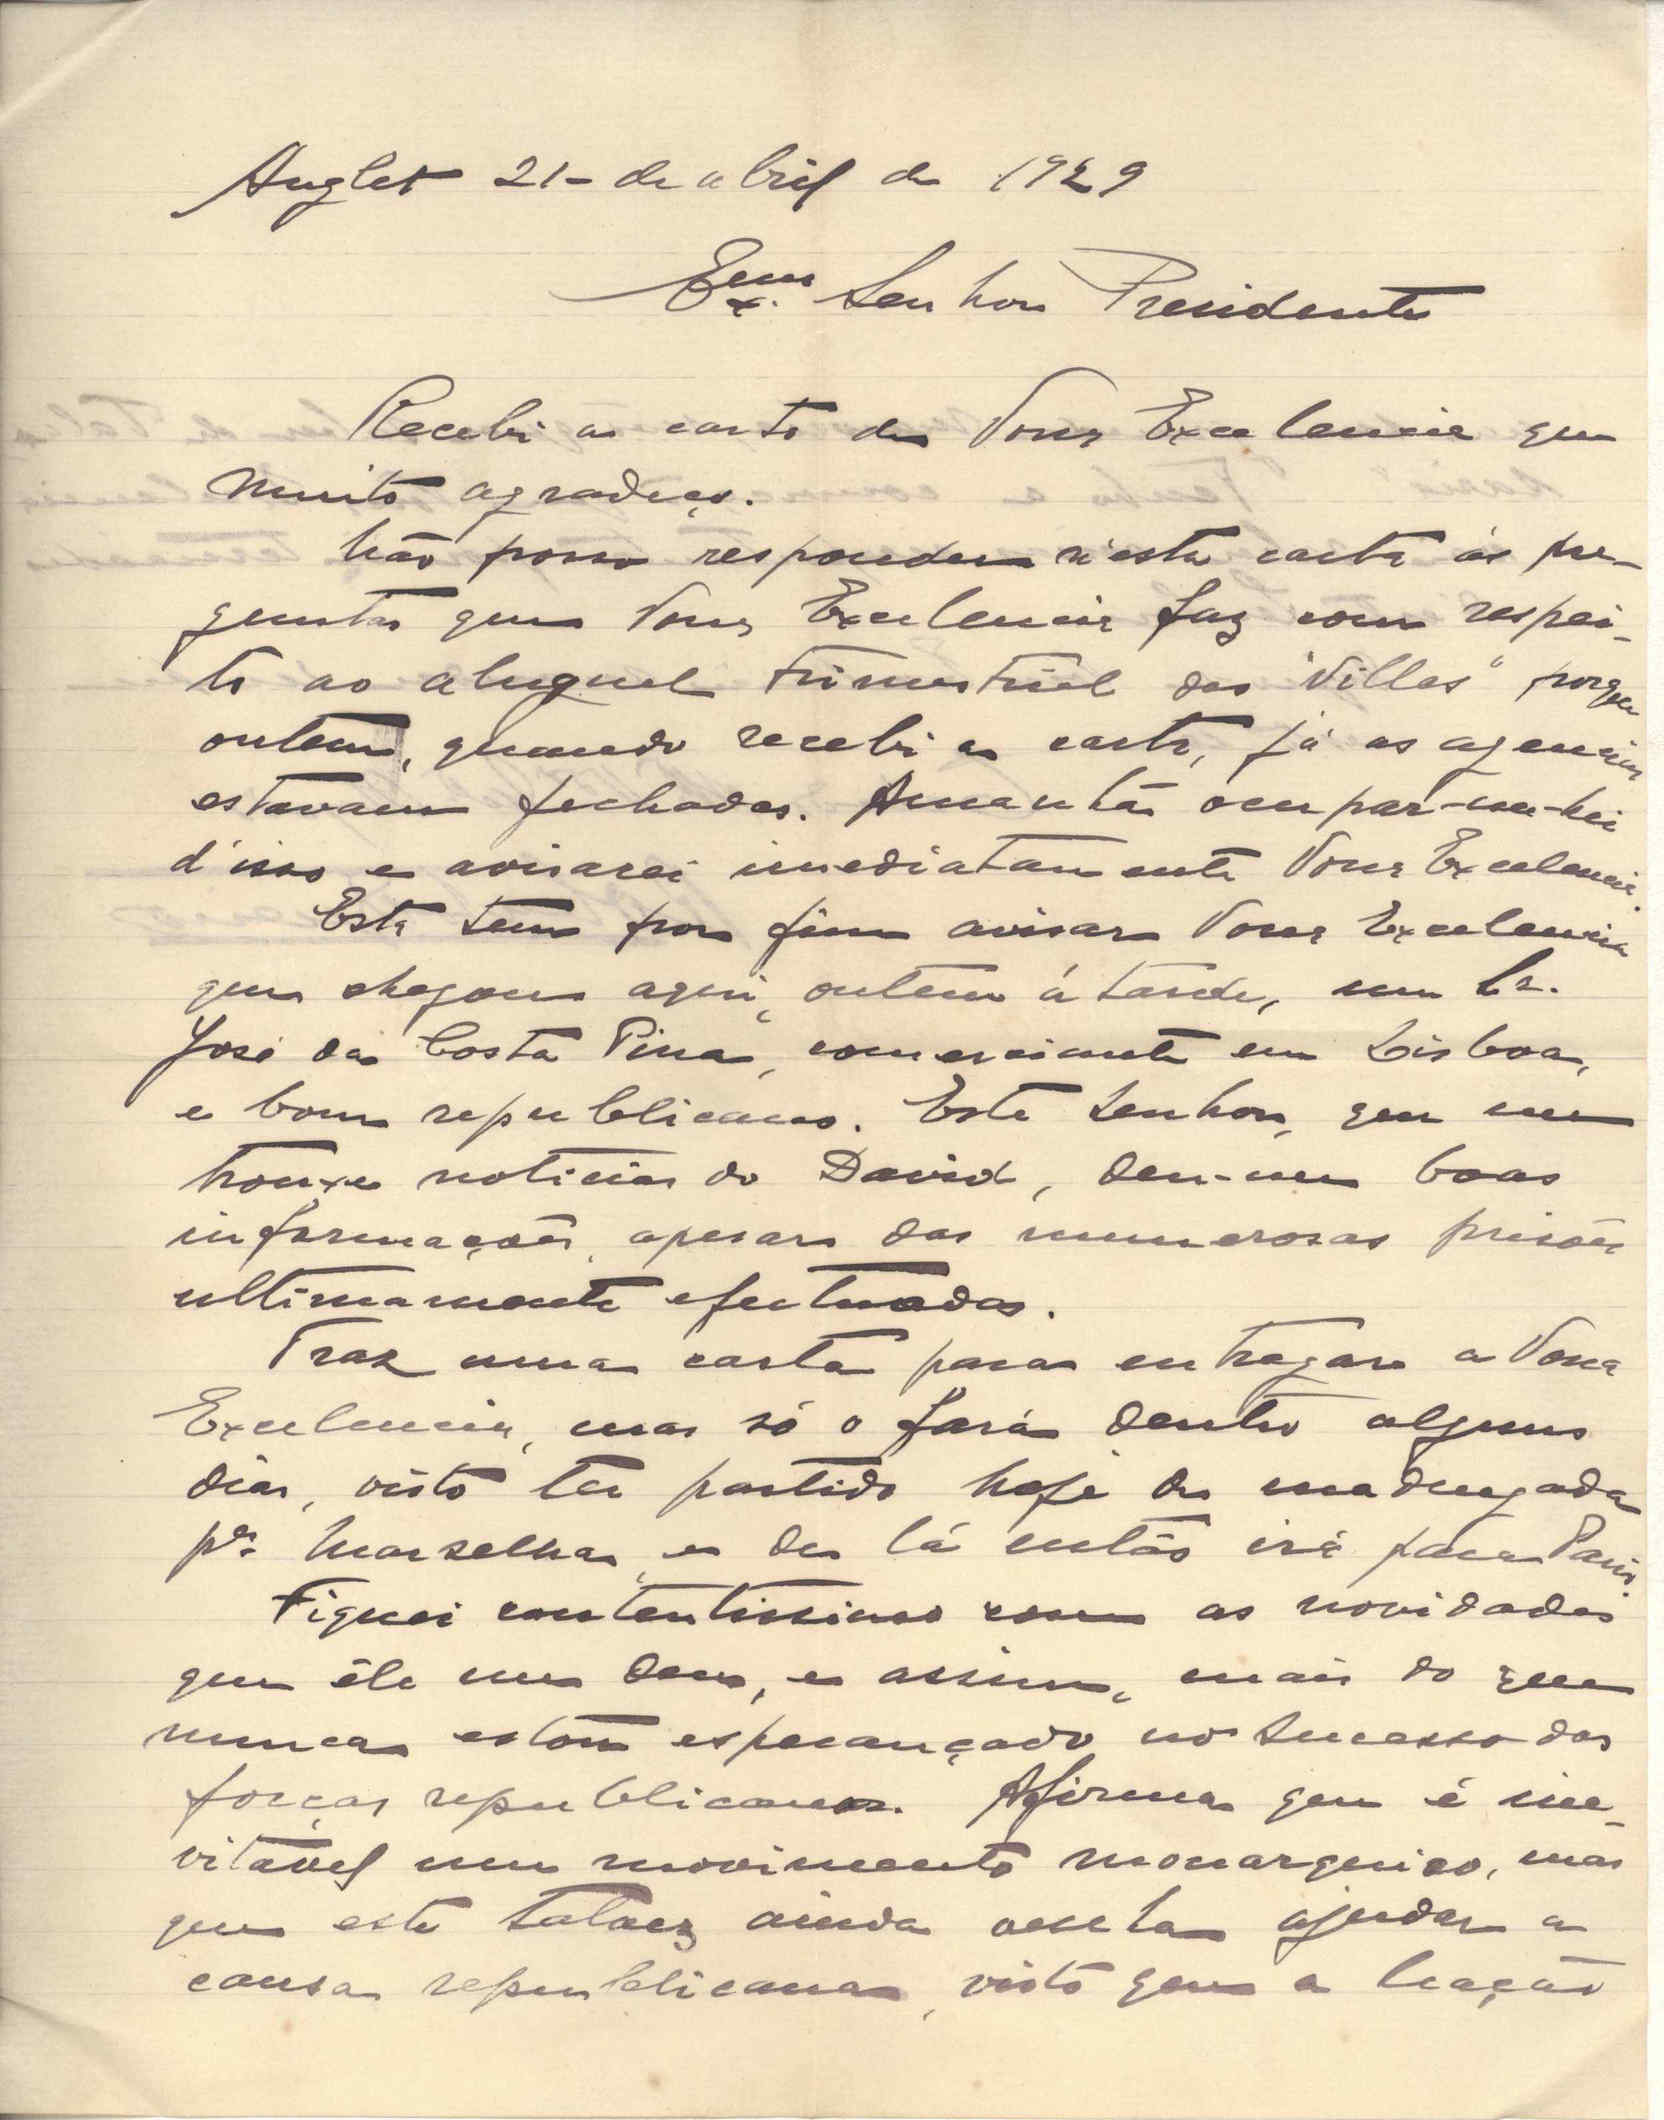 Anglet 21- de abril de 1929
Exmo. Senhor Presidente
Recebi a carta de Vossa Excelencia que
muito agradeço.
Não posso responder n'esta carta ás pre-
guntas que Vossa Excelencia faz com respei-
to ao aluguel trimestrial das "Villas" porque
ontem, quando recebi a carta, já as agencias
estavam fechadas. Amanhã ocupar-me-hei
d'isso e avisarei imediatamente Vossa Excelencia.
Esta tem por fim avisar Vossa Excelencia
que chegou aqui, ontem á tarde, um Sr.
José da Costa Pina, comerciante em Lisboa,
e bom republicano. Este Senhor, que me
trouxe noticias do David, deu-me boas
informações, apesar das numerosas prisões
ultimamente efectuadas.
Traz uma carta para entregar a Vossa
Excelencia, mas só o fará dentro alguns
dias, visto ter partido hoje de madrugada
pª. Marselha, e de lá então irá para Paris.
Fiquei contentissimo com as novidades
que êle me deu, e assim, mais do que
nunca estou esperançado no sucesso das
forças republicanas. Afirma que é ine-
vitavel um movimento monarquico, mas
que este talvez ainda venha ajudar a
causa republicana, visto que a Nação